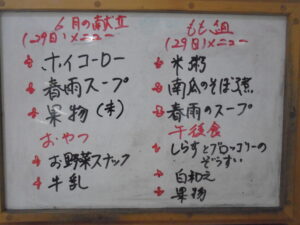 6月の献立
(29日)メニュー
ホイコーロー
春雨スープ
果物(オ)
おやつ
お野菜スナック
牛乳
もも組
(29日)メニュー
米粥
南瓜のそぼろ煮
春雨のスープ
午後食
しらすとブロッコリーの
ぞうすい
白和え
果物